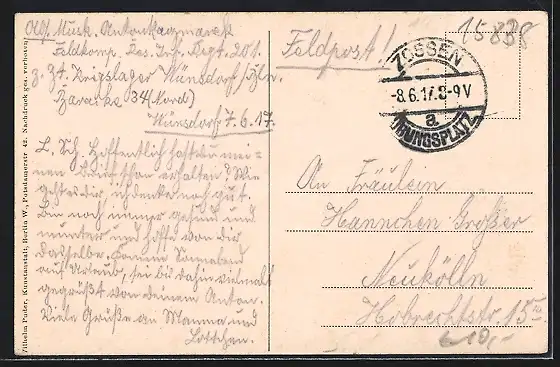 Abs. Musk. Anton Kaczmarek
Feldkomp. Res. Inf. Regt. 201.
z. Zt. Kriegslager Wünsdorf/Bln.
Baracke 34 (Nord)
Wünsdorf 7.6.17.
L. Sch. Hoffentlich hast du mei-
nen Brief schon erhalten? Wie
geht es dir, ich denke noch gut.
Bin noch immer gesund und
munter und hoffe von dir
dasselbe. Komme Sonnabend
auf Urlaub, sei bis dahin vielmals
gegrüßt von deinem Anton.
Viele Grüße an Mamma und
Lottchen.
Wilhelm Puder, Kunstanstalt, Berlin W., Potsdamerstr. 42. Nachdruck ges. verboten.
Feldpost!
ZOSSEN
-8.6.17.8-9V
a
ÜBUNGSPLATZ
15838
An Fräulein
Hannchen Großer
Neukölln
Hobrechtstr. 15
10,-